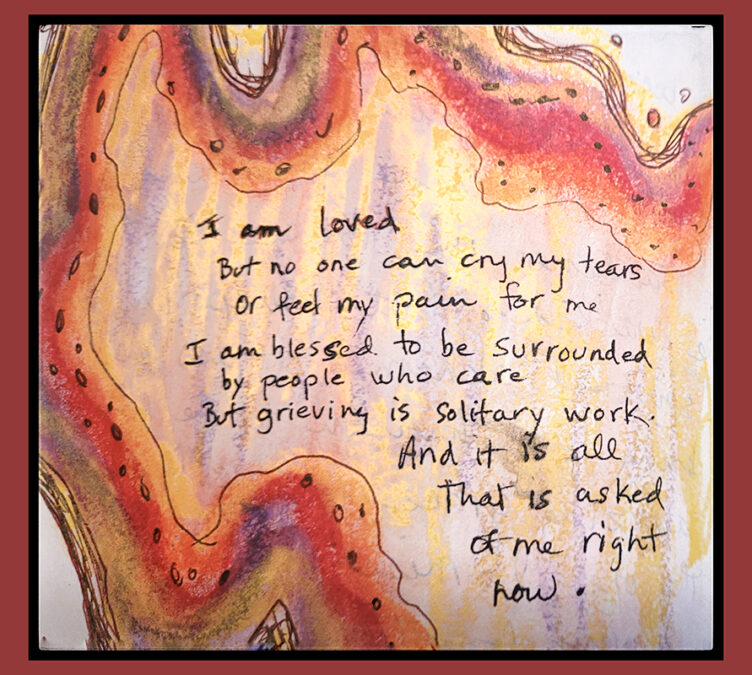 I am loved
But no one can cry my tears
Or feel my pain for me
I am blessed to be surrounded
by people who care
But grieving is solitary work.
And it is all
That is asked
of me right
now.